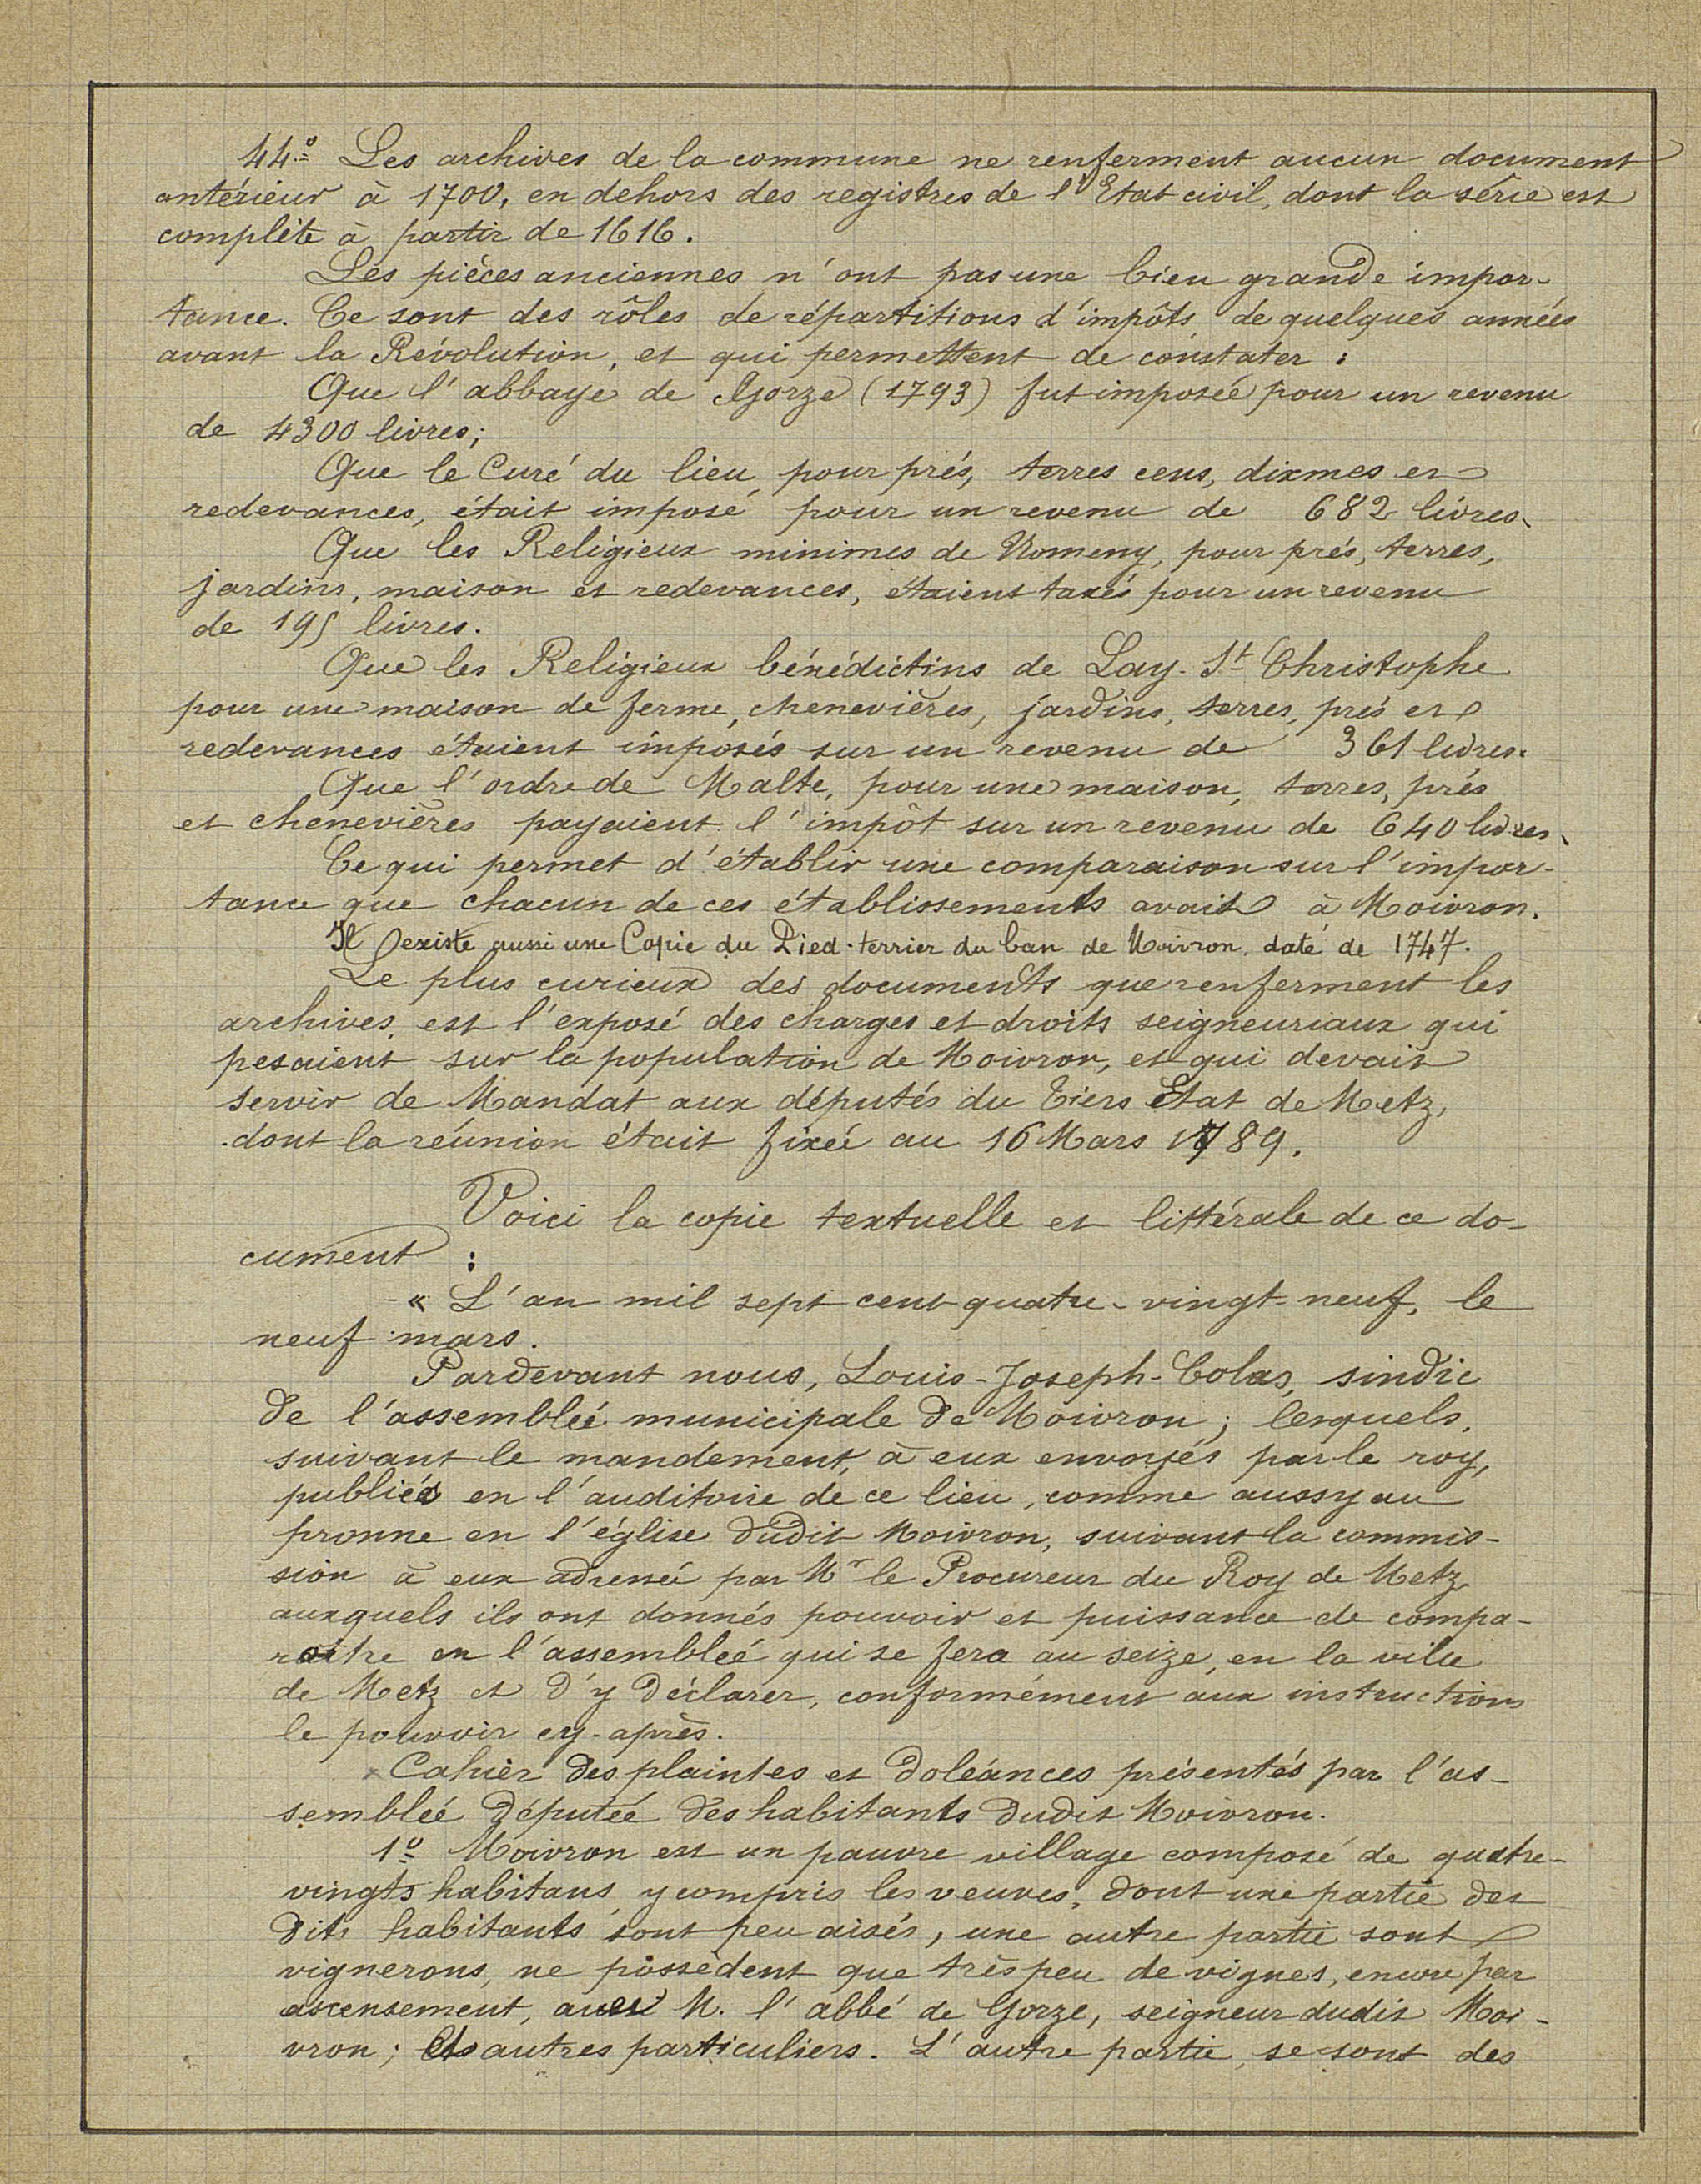 44º Les archives de la commune ne renferment aucun document
antérieur à 1700, en dehors des registres de l'Etat civil, dont la série est
complète à partir de 1616.
Les pièces anciennes n'ont pas une bien grande impor-
tance. Ce sont des rôles de répartitions d'impôts, de quelques années
avant la Révolution, et qui permettent de constater :
Que l'abbaye de Gorze (1793) fut imposée pour un revenu
de 4300 livres;
Que le Curé du lieu, pour prés, terres cens, dixmes et
redevances, était imposé pour un revenu de 682 livres.
Que les Religieux minimes de Nomeny, pour prés, terres,
jardins, maison et redevances, étaient taxés pour un revenu
de 195 livres.
Que les Religieux bénédictins de Lay-St Christophe
pour une maison de ferme, chenevières, jardins, terres, prés et
redevances étaient imposés sur un revenu de 361 livres.
Que l'ordre de Malte, pour une maison, terres, prés
et chenevières payaient l'impôt sur un revenu de 640 livres.
Ce qui permet d'établir une comparaison sur l'impor-
tance que chacun de ces établissements avait à Moivron.
Il existe aussi une Copie du Pied-terrier du ban de Moivron, daté de 1747.
Le plus curieux des documents que renferment les
archives est l'exposé des charges et droits seigneuriaux qui
pesaient sur la population de Moivron, et qui devait
servir de Mandat aux députés du Tiers Etat de Metz,
dont la réunion était fixée au 16 Mars 1789.
Voici la copie textuelle et littérale de ce do-
cument :
« L'an mil sept cent quatre-vingt-neuf, le
neuf mars.
Pardevant nous, Louis-Joseph-Colas, sindic
de l'assemblée municipale de Moivron; lesquels,
suivant le mandement, à eux envoyés par le roy,
publiés en l'auditoire de ce lieu, comme aussy au
pronne en l'église dudit Moivron, suivant la commis-
sion à eux adressée par Mr le Procureur du Roy de Metz,
auxquels ils ont donnés pouvoir et puissance de compa-
raitre en l'assemblée qui se fera au seize, en la ville
de Metz et d'y déclarer, conformément aux instructions
le pouvoir cy-après.
Cahier des plaintes et doléances présentés par l'as-
semblée députée des habitants dudit Moivron.
1º Moivron est un pauvre village composé de quatre-
vingts habitans, y compris les veuves, dont une partie des
dits habitants sont peu aisés, une autre partie sont
vignerons, ne possèdent que très peu de vignes, encore par
ascensement, avec M. l'abbé de Gorze, seigneur dudit Moi-
vron; autres particuliers. L'autre partie, se sont des